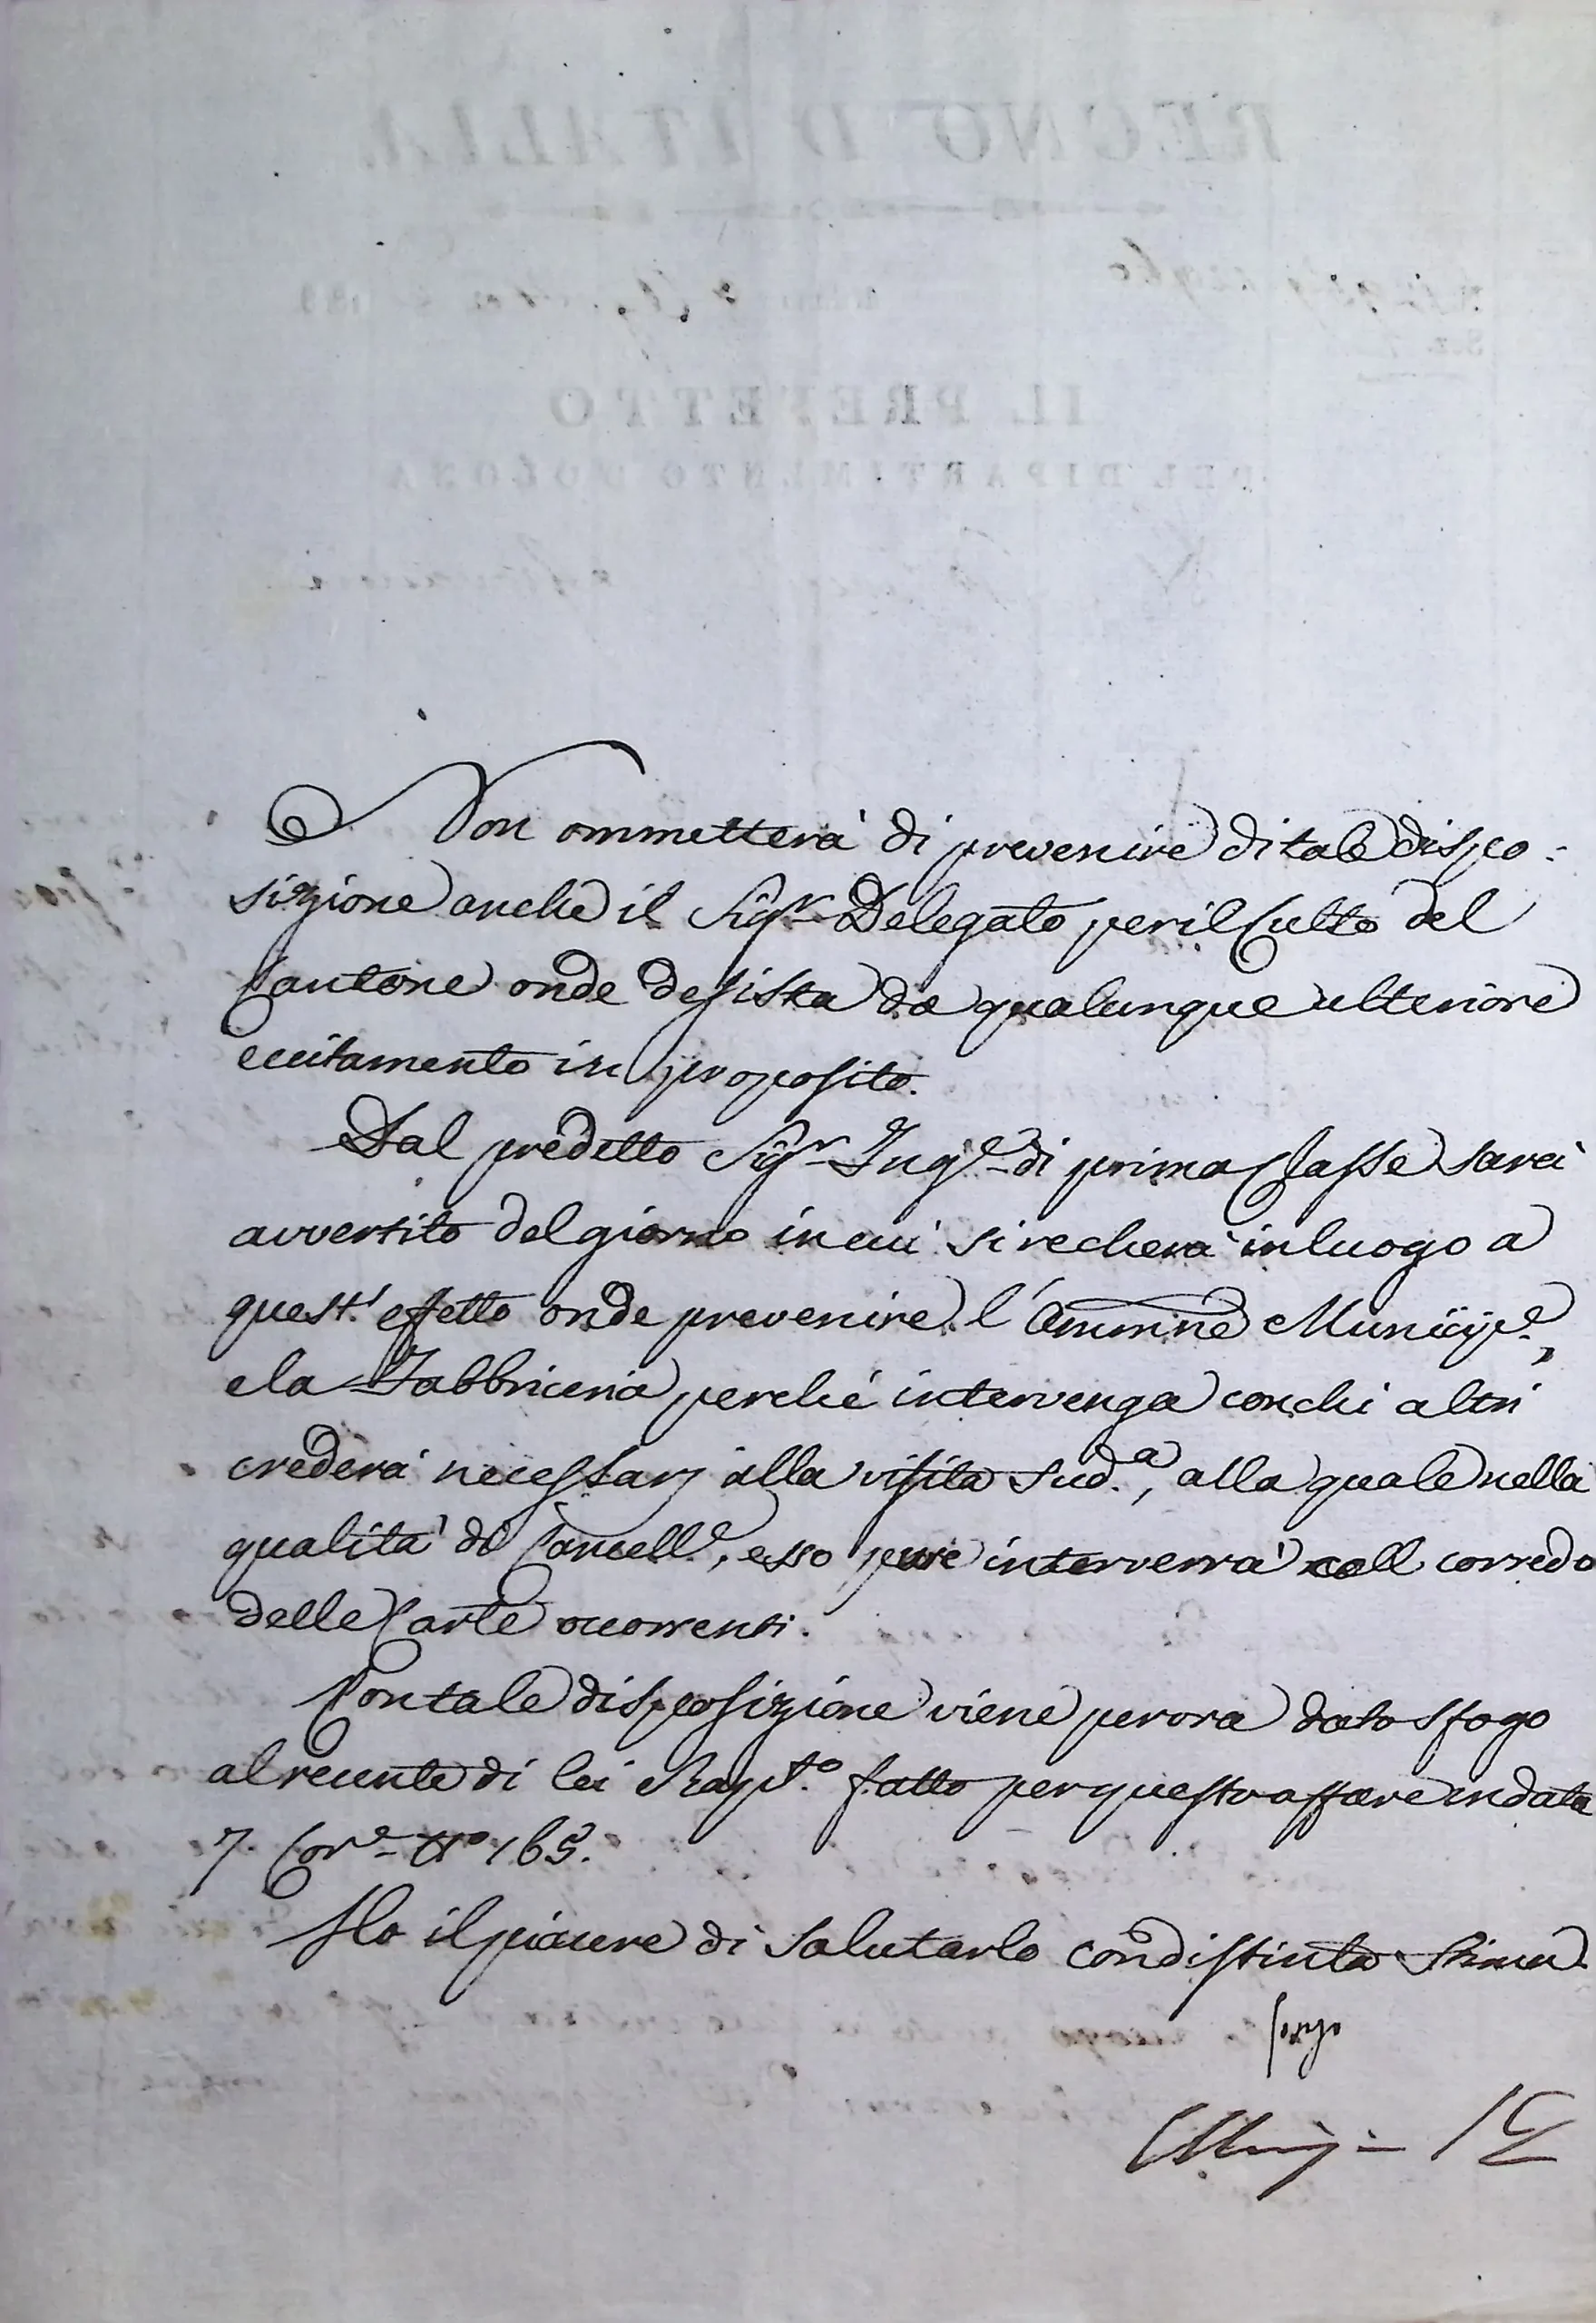 Non ommetterà di prevenire di tale dispo=
sizione anche il Sigr. Delegato per il Culto del
Cantone onde desista da qualunque ulteriore
eccitamento in proposito.
Dal predetto Sigr. Inge. di prima Classe sarà
avvertito del giorno in cui si recherà in luogo a
quest' effetto onde prevenire l'Ammne Municipe.,
e la Fabbriceria perché intervenga con chi altri
crederà necessarj alla visita sud.a, alla quale nella
qualità di Cancelle., esso pure interverrà coll corredo
delle Carte occorrenti.
Con tale disposizione viene per ora dato sfogo
al recente di lei Rapt.o fatto per questo affare in data
7. Core. No 165.
Ho il piacere di salutarlo con distinta stima.